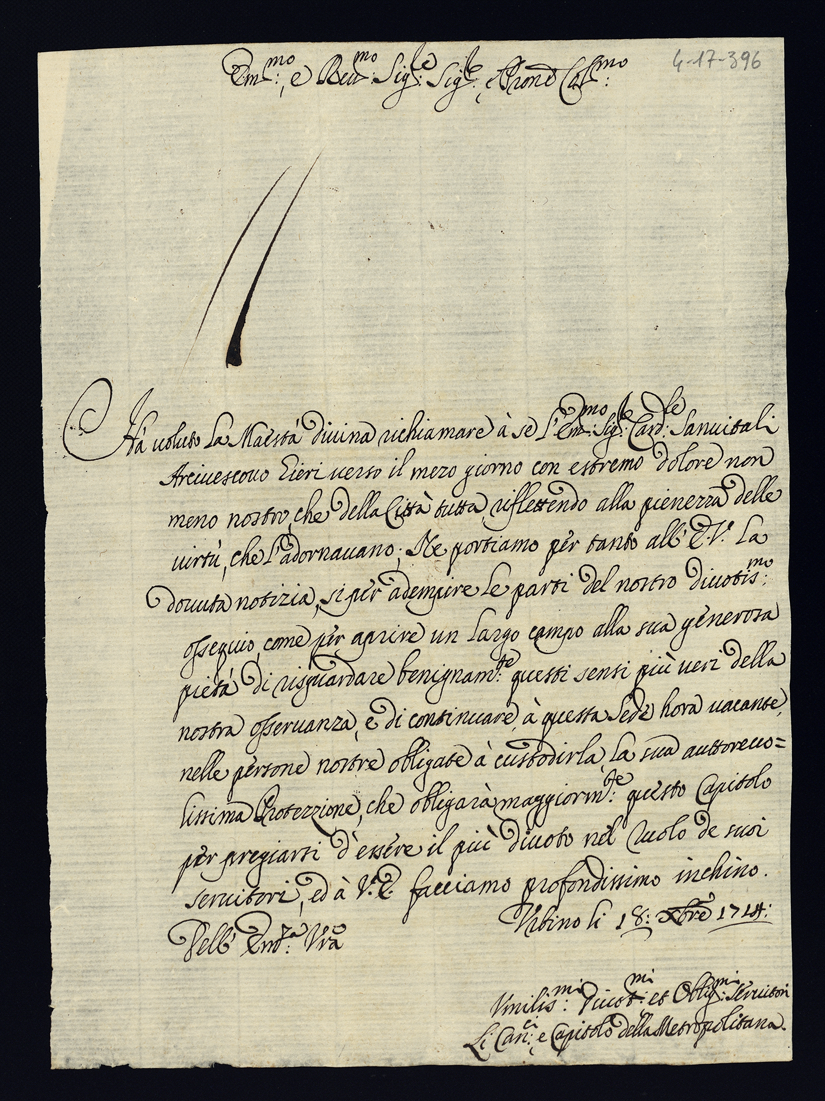 Em.mo: e Reu.mo: Sig.re: Sig.re, e Prone Col.mo:
4-17-396
Hà voluto La Maestà divina richiamare à se L'Em.mo: Sig.r: Card.le: Sanvitali
Arcivescovo Hieri verso il mezo giorno con estremo dolore non
meno nostro, che della Città tutta riflettendo alla pienezza delle
virtù, che L'adornavano; Ne portiamo per tanto all' E.V. La
dovuta notizia, si per adempire Le parti del nostro divotis.mo:
ossequio, come per aprire un Largo campo alla sua generosa
pietà di risguardare benignam.te: questi sensi più veri della
nostra osservanza, e di continuare à questa Sede hora vacante,
nelle persone nostre obligate à custodirla La sua auttorevo=
lissima Protezzione, che obligarà maggiorm.te: questo Capitolo
per pregiarsi d'essere il più divoto nel Ruolo de suoi
servitori, ed à V.E. facciamo profondissimo inchino.
Vrbino li 18: Xbre 1714:
Dell' Em.za: Vra
Vmilis.mi: Divot.mi: et Oblig.mi: Servitori
Li Can.ci: e Capitolo della Metropolitana.